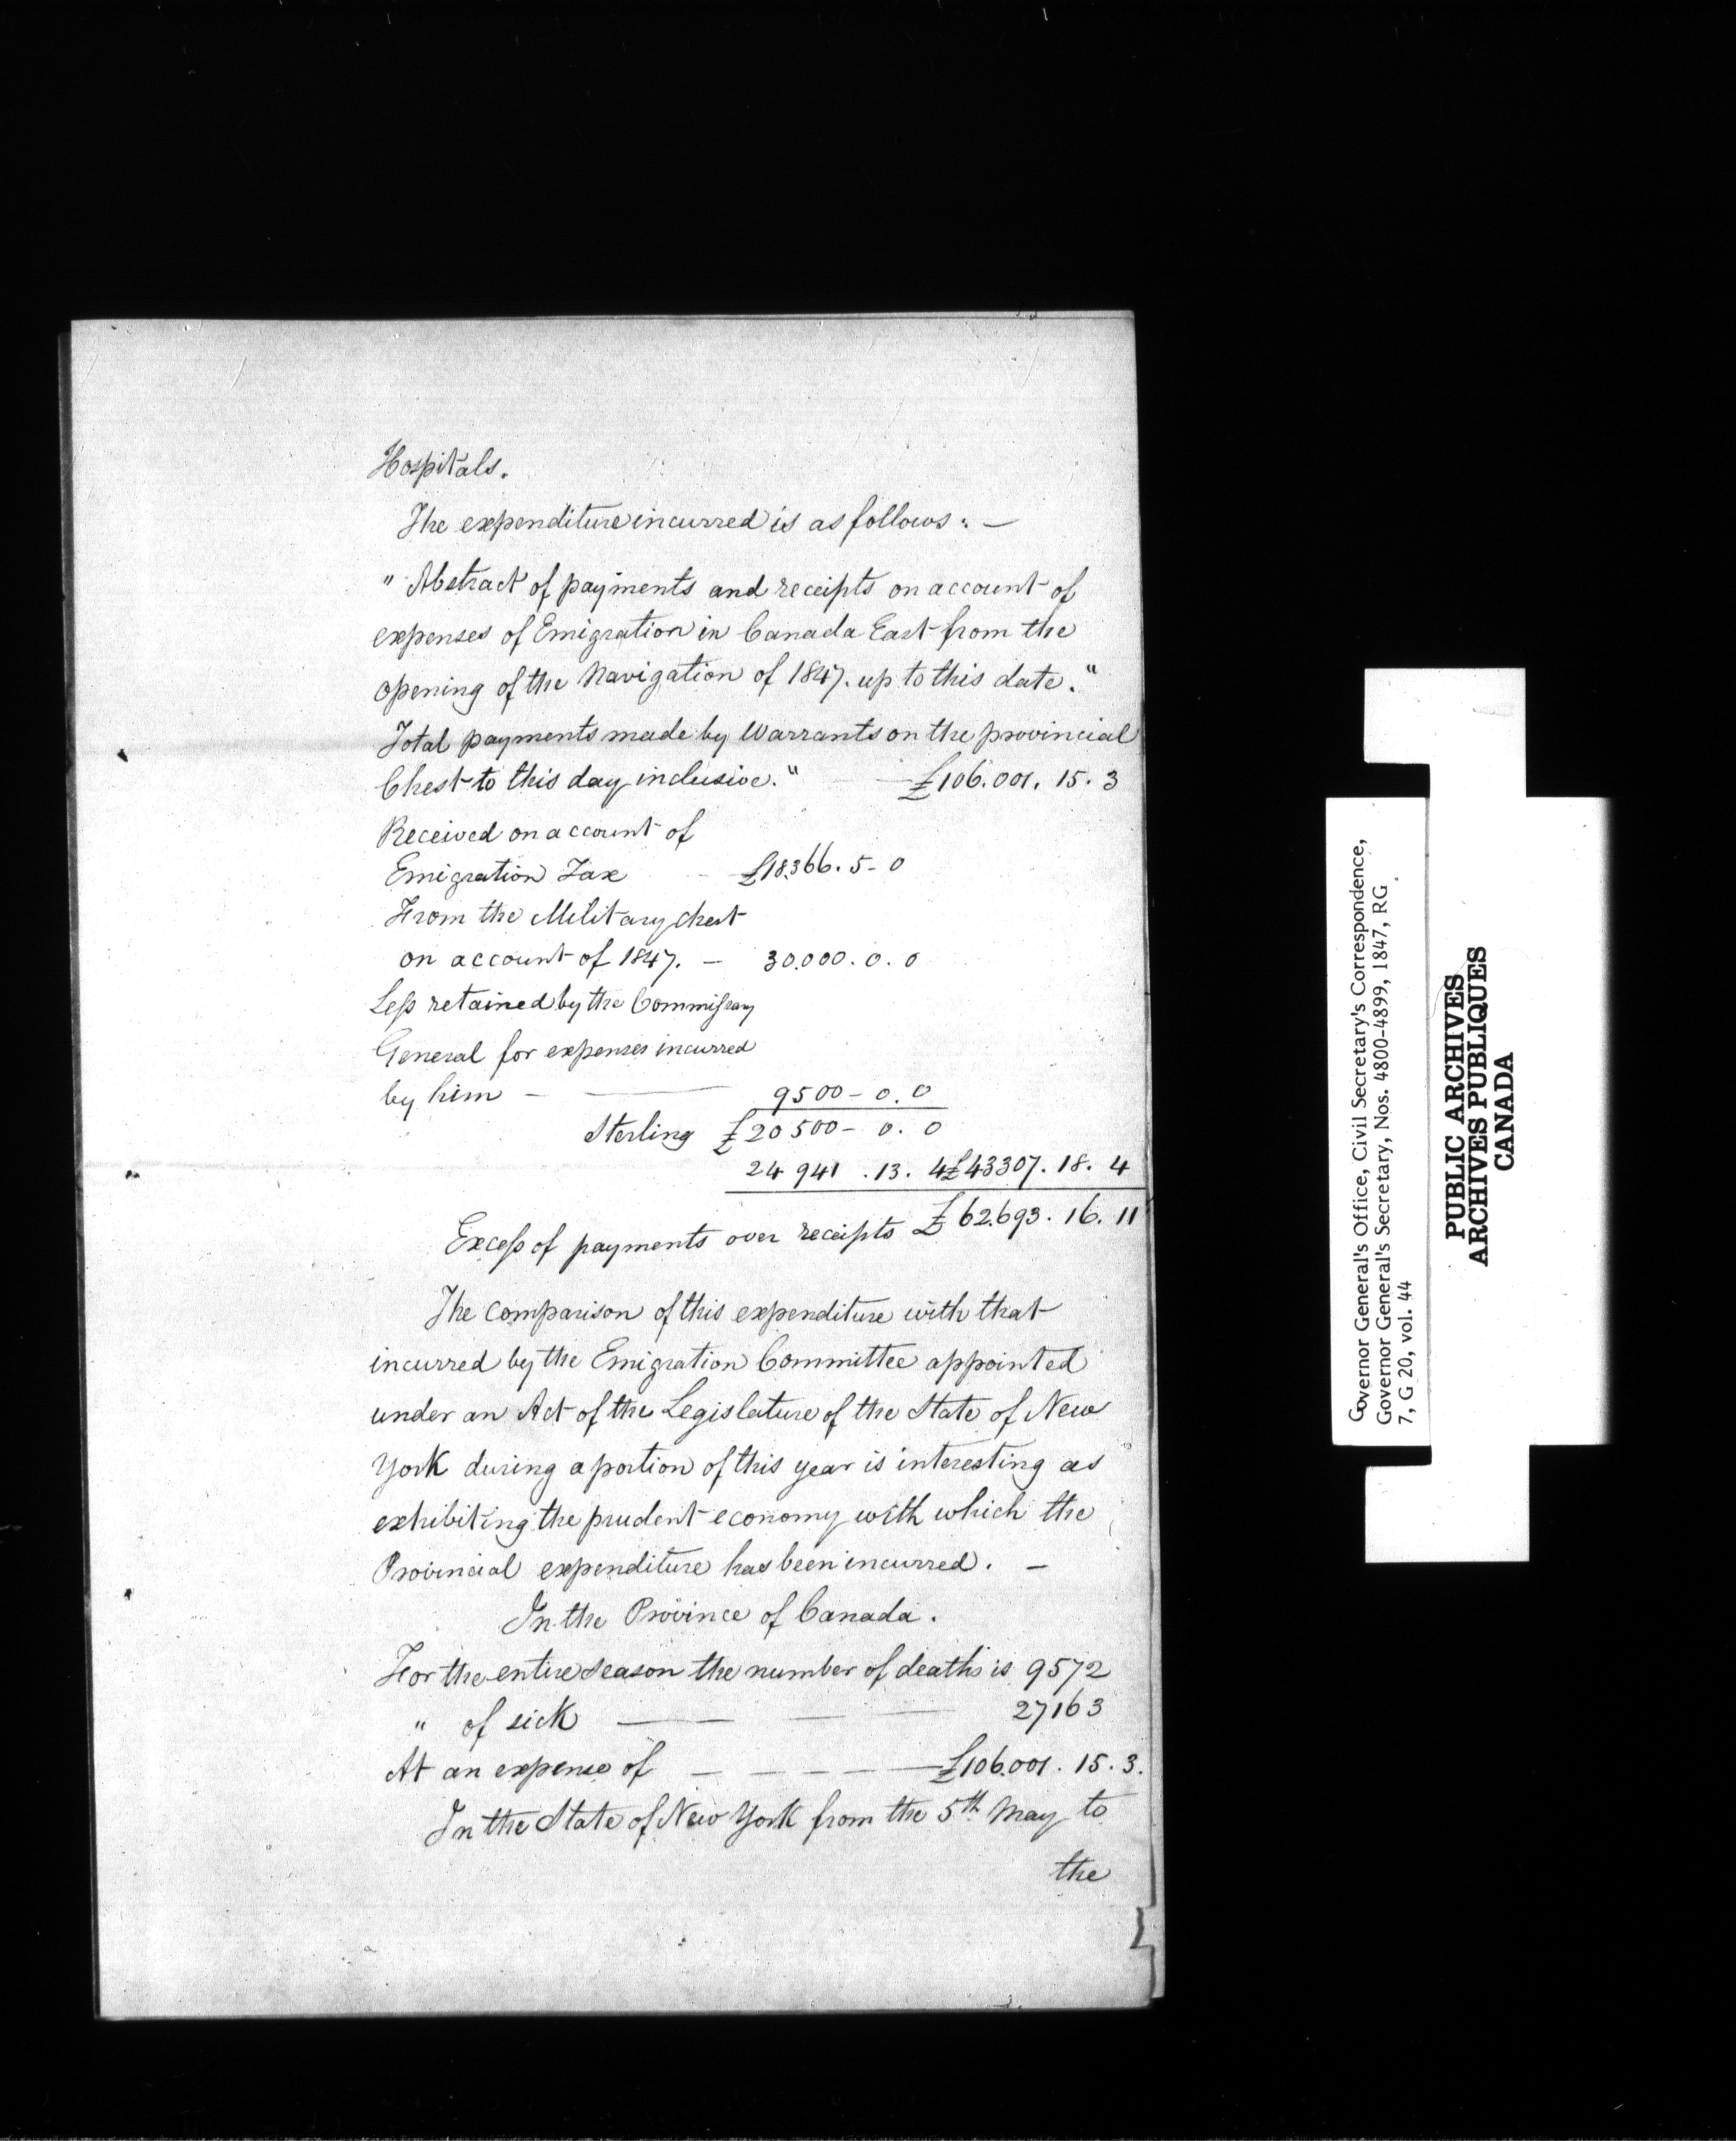 Hospitals.
The expenditure incurred is as follows: —
" Abstract of payments and receipts on account of
expenses of Emigration in Canada East from the
opening of the Navigation of 1847. up to this date."
Total payments made by Warrants on the provincial
Chest to this day inclusive." — £106.001. 15. 3
Received on account of
Emigration Tax - £18.366. 5 - 0
From the Military chest
on account of 1847. — 30.000. 0. 0
Less retained by the Commissary
General for expenses incurred
by him — — 9500 - 0. 0
Sterling £20500 - 0. 0
24941 . 13. 4 £43307. 18. 4
Excess of payments over receipts £62.693. 16. 11
The comparison of this expenditure with that
incurred by the Emigration Committee appointed
under an Act of the Legislature of the State of New
York during a portion of this year is interesting as
exhibiting the prudent economy with which the
Provincial expenditure has been incurred. —
In the Province of Canada.
For the entire season the number of deaths is 9572
" of sick — — — 27163
At an expense of — — — — £106.001. 15. 3.
In the State of New York from the 5th May to
the
Governor General's Office, Civil Secretary's Correspondence,
Governor General's Secretary, Nos. 4800-4899, 1847, RG
7, G 20, vol. 44
PUBLIC ARCHIVES
ARCHIVES PUBLIQUES
CANADA